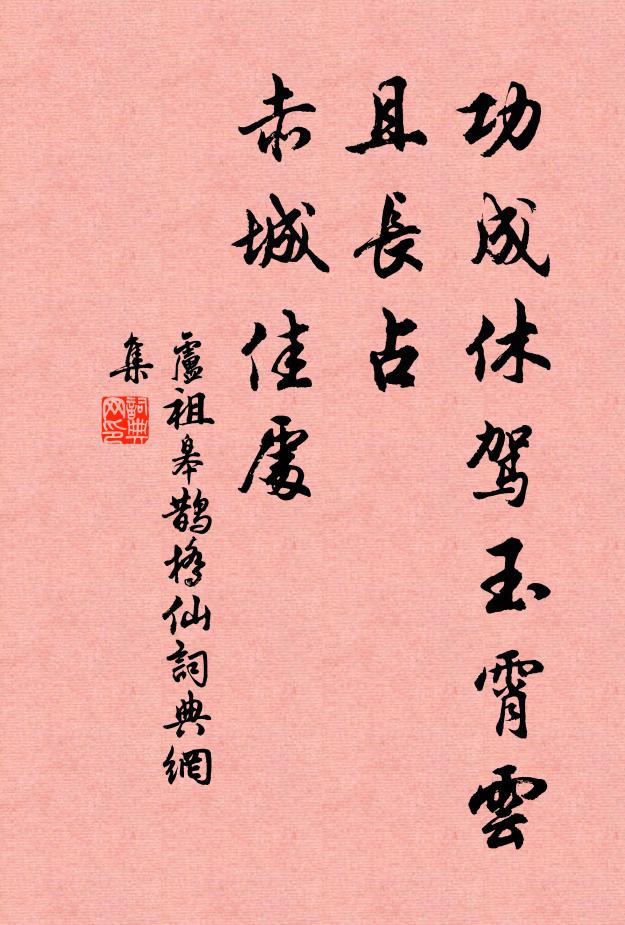 功成休驾玉霄雲
且長占
赤城佳處
盧祖皋鵲橋仙詞典網
集
詞典网印